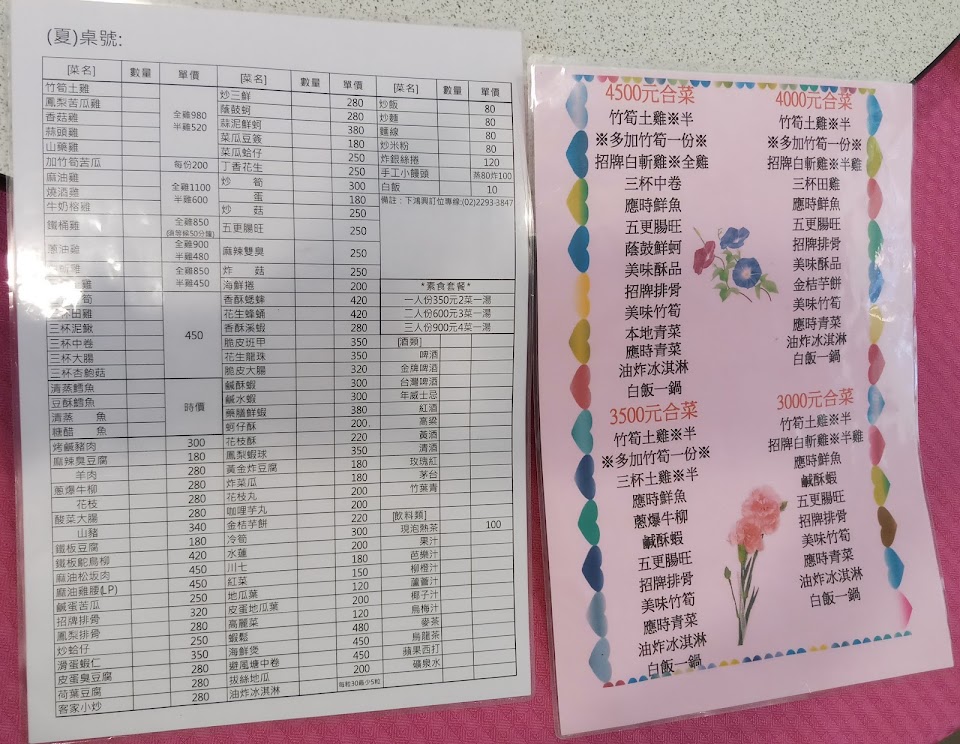 (夏)桌號:
[菜名] 數量 單價
竹筍土雞
鳳梨苦瓜雞
香菇雞
蒜頭雞
山藥雞
全雞980
半雞520
加竹筍苦瓜 每份200
麻油雞
燒酒雞
牛奶榕雞
全雞1100
半雞600
鐵桶雞 全雞850
蔥油雞 全雞900
半雞480
全雞850
半雞450
三杯泥鰍
三杯中卷
三杯大腸
三杯杏鮑菇
450
清蒸鱈魚
豆酥鱈魚
清蒸 魚
糖醋 魚
時價
烤鹹豬肉 300
麻辣臭豆腐 180
羊肉 280
蔥爆牛柳 280
花枝 280
酸菜大腸 280
山豬 340
鐵板豆腐 180
鐵板鴕鳥柳 420
麻油松坂肉 450
麻油雞腰(LP) 450
鹹蛋苦瓜 250
招牌排骨 320
鳳梨排骨 280
炒蛤仔 250
滑蛋蝦仁 350
皮蛋臭豆腐 280
荷葉豆腐 280
客家小炒 280
[菜名] 數量 單價
炒三鮮 280
蔭鼓蚵 280
蒜泥鮮蚵 380
菜瓜豆簽 180
菜瓜蛤仔 250
丁香花生 250
炒 筍 300
蛋 180
炒 菇 250
五更腸旺 250
麻辣雙臭 250
炸 菇 250
海鮮捲 200
香酥蟋蟀 420
花生蜂蛹 420
香酥溪蝦 280
脆皮班甲 350
花生龍珠 350
脆皮大腸 320
鹹酥蝦 300
鹹水蝦 300
藥膳鮮蝦 380
蚵仔酥 200
花枝酥 220
鳳梨蝦球 350
黃金炸豆腐 180
炸菜瓜 180
花枝丸 200
咖哩芋丸 200
金桔芋餅 220
冷筍 300
水蓮 180
川七 150
紅菜 120
地瓜葉 120
皮蛋地瓜葉 200
高麗菜 120
蝦鬆 480
海鮮煲 450
避風塘中卷 450
拔絲地瓜 200
油炸冰淇淋 每粒30最少5粒
[菜名] 數量 單價
炒飯 80
炒麵 80
麵線 80
炒米粉 80
炸銀絲捲 120
手工小饅頭 蒸80炸100
白飯 10
備註：下鴻興訂位專線:(02)2293-3847
*素食套餐*
一人份350元2菜一湯
二人份600元3菜一湯
三人份900元4菜一湯
[酒類]
啤酒
金牌啤酒
台灣啤酒
年威士忌
紅酒
高粱
黃酒
清酒
玫瑰紅
茅台
竹葉青
[飲料類]
現泡熱茶 100
果汁
芭樂汁
柳橙汁
蘆薈汁
椰子汁
烏梅汁
麥茶
烏龍茶
蘋果西打
礦泉水
4500元合菜
竹筍土雞※半
※多加竹筍一份※
招牌白斬雞※全雞
三杯中卷
應時鮮魚
五更腸旺
蔭鼓鮮蚵
美味酥品
招牌排骨
美味竹筍
本地青菜
應時青菜
油炸冰淇淋
白飯一鍋
4000元合菜
竹筍土雞※半
※多加竹筍一份※
招牌白斬雞※半雞
三杯田雞
應時鮮魚
五更腸旺
招牌排骨
美味酥品
金桔芋餅
美味竹筍
應時青菜
油炸冰淇淋
白飯一鍋
3500元合菜
竹筍土雞※半
※多加竹筍一份※
三杯土雞※半
應時鮮魚
蔥爆牛柳
鹹酥蝦
五更腸旺
招牌排骨
美味竹筍
應時青菜
油炸冰淇淋
白飯一鍋
3000元合菜
竹筍土雞※半
招牌白斬雞※半雞
應時鮮魚
鹹酥蝦
五更腸旺
招牌排骨
美味竹筍
應時青菜
油炸冰淇淋
白飯一鍋